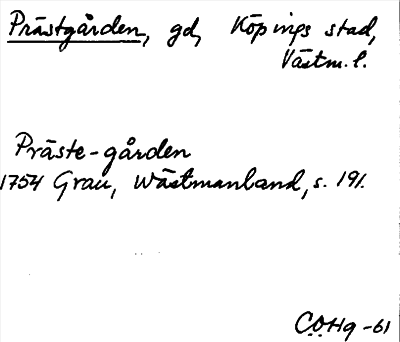 Prästgården, gd, Köpings stad,
Västm. l.
Präste-gården
1754 Grau, Wästmanland, s. 191.
C.O.Hg -61